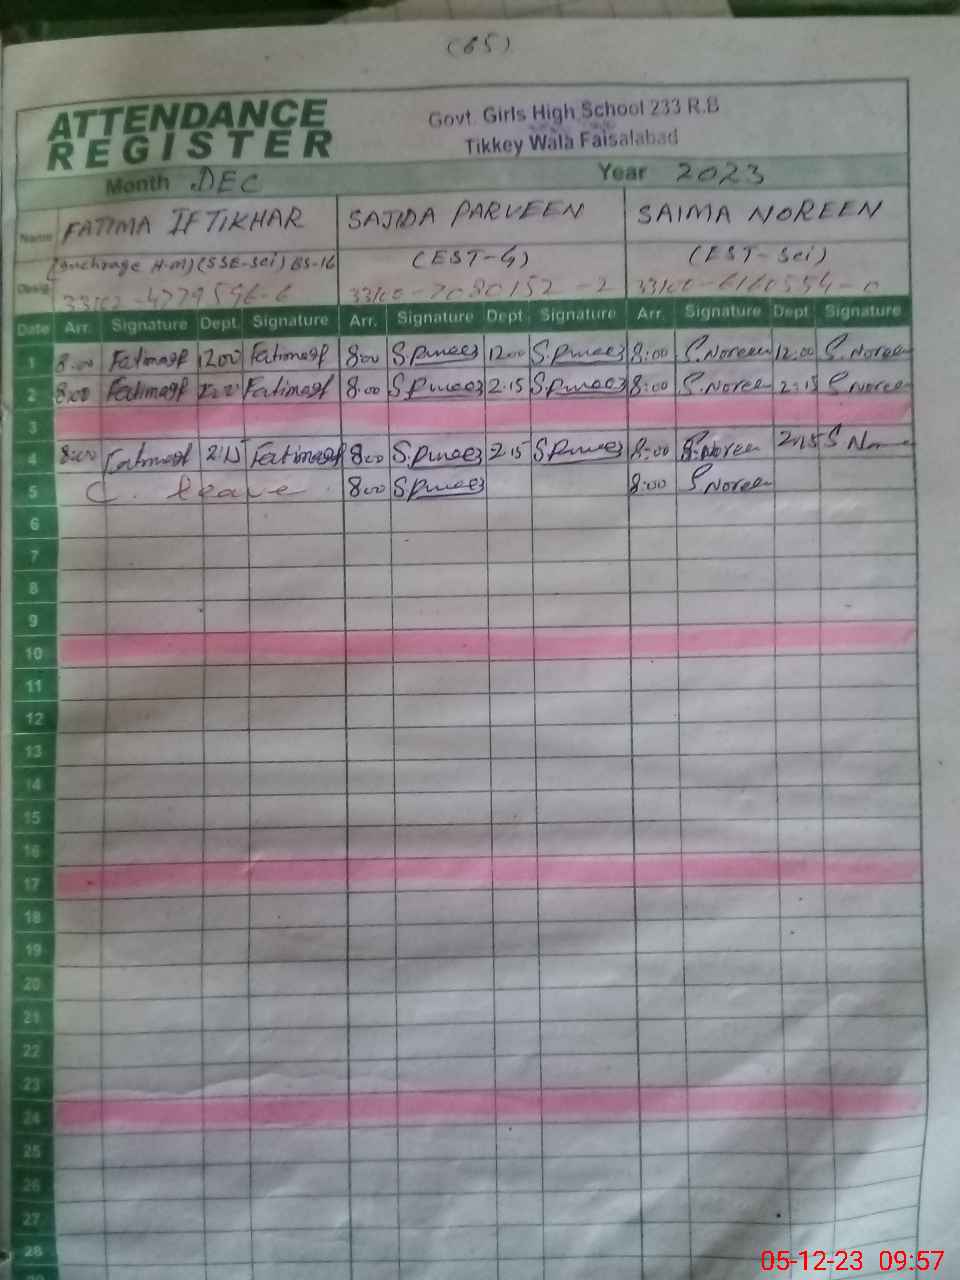 (65)
ATTENDANCE REGISTER
Govt. Girls High School 233 R.B
Tikkey Wala Faisalabad
Month DEC Year 2023
Name FATIMA IFTIKHAR SAJIDA PARVEEN SAIMA NOREEN
(Inchrage H.M) (SSE-Sci) BS-16 (EST-G) (EST-Sci)
Desig.
Date Arr. Signature Dept. Signature Arr. Signature Dept. Signature Arr. Signature Dept. Signature
1 8:00 1200 8:00 12:00 8:00 S.Noreen 12:00 S.Noreen
2 8:00 8:00 2:15 8:00 S.Noreen 2:15 S.Noreen
3
4 8:00 2:15 8:00 2:15 8:00 S.Noreen 2:15
5 C. leave. 8:00 8:00 S.Noreen
6
7
8
9
10
11
12
13
14
15
16
17
18
19
20
21
22
23
24
25
26
27
28
05-12-23 09:57